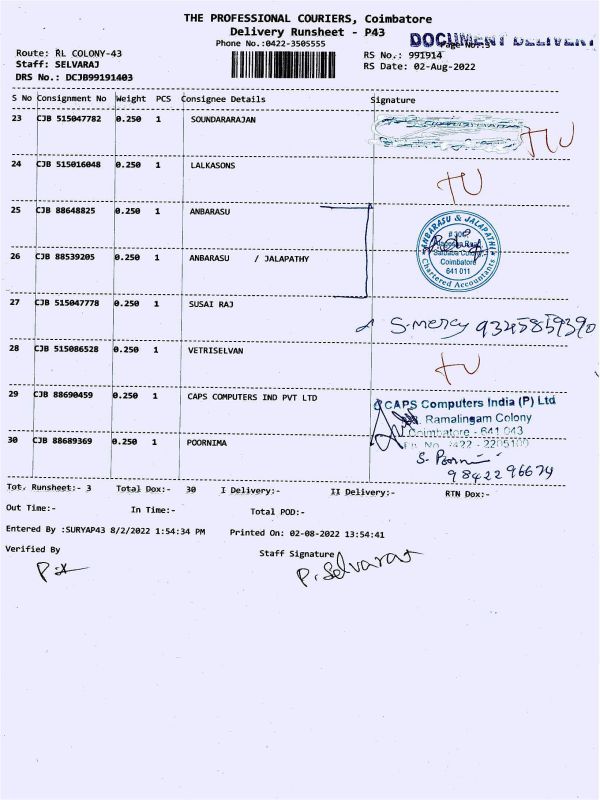 THE PROFESSIONAL COURIERS, Coimbatore
Delivery Runsheet - P43
DOCUMENT DELIVERY
Phone No.:0422-3505555
Page No.:3
Route: RL COLONY-43
RS No.: 991914
Staff: SELVARAJ
RS Date: 02-Aug-2022
DRS No.: DCJB99191403
S No Consignment No Weight PCS Consignee Details Signature
23 CJB 515047782 0.250 1 SOUNDARARAJAN
TU
24 CJB 515016048 0.250 1 LALKASONS
TU
25 CJB 88648825 0.250 1 ANBARASU
ANBARASU & JALAPATHY
Saibaba Colony,
Coimbatore
641 011
Chartered Accountants
26 CJB 88539205 0.250 1 ANBARASU / JALAPATHY
27 CJB 515047778 0.250 1 SUSAI RAJ
S-mercy 9345859390
28 CJB 515086528 0.250 1 VETRISELVAN
TU
29 CJB 88690459 0.250 1 CAPS COMPUTERS IND PVT LTD
CAPS Computers India (P) Ltd
Ramalingam Colony
Coimbatore - 641 043
No. 0422 - 2205100
30 CJB 88689369 0.250 1 POORNIMA
S. Poornima
98422 96674
Tot. Runsheet:- 3 Total Dox:- 30 I Delivery:- II Delivery:- RTN Dox:-
Out Time:- In Time:- Total POD:-
Entered By :SURYAP43 8/2/2022 1:54:34 PM Printed On: 02-08-2022 13:54:41
Verified By Staff Signature
P. Selvaraj